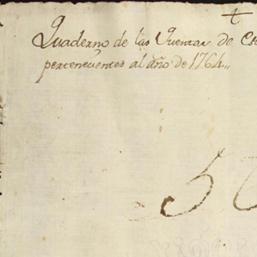 Quaderno de las Quentas de
pertenecientes al año de 1764
50